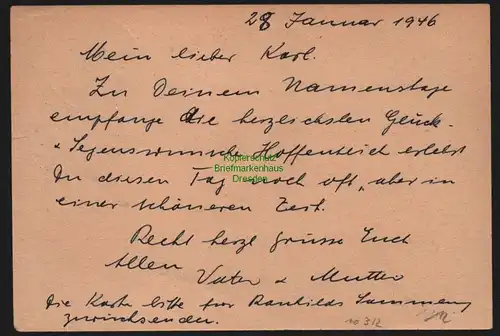 28 Januar 1946
Mein lieber Karl.
Zu Deinem Namenstage
empfange die herzlichsten Glück-
& Segenswünsche Hoffentlich erlebst
Du diesen Tag noch oft, aber in
einer schöneren Zeit.
Recht herzl grüsse Euch
Allen
Vater & Mutter
Die Karte bitte für Sammlung
zurücksenden.
10 312
Kopierschutz
Briefmarkenhaus
Dresden